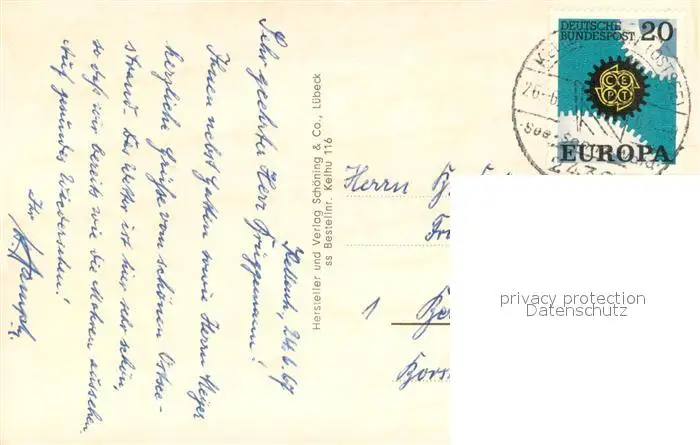 Kellenh., 24.6.67
Sehr geehrter Herr Brüggemann!
Ihnen nebst Gatten sowie Herrn Meyer
herzliche Grüße vom schönen Ostsee-
strand. Das Wetter ist hier sehr schön,
so daß wir bereits wie die Mohren aussehen.
Auf gesundes Wiedersehen!
Ihr
Hersteller und Verlag Schöning & Co., Lübeck
ss Bestellnr. Kelhu 116
DEUTSCHE
BUNDESPOST 20
CEPT
EUROPA
(OSTSEE)
26.6.
243
Herrn
1
privacy protection
Datenschutz